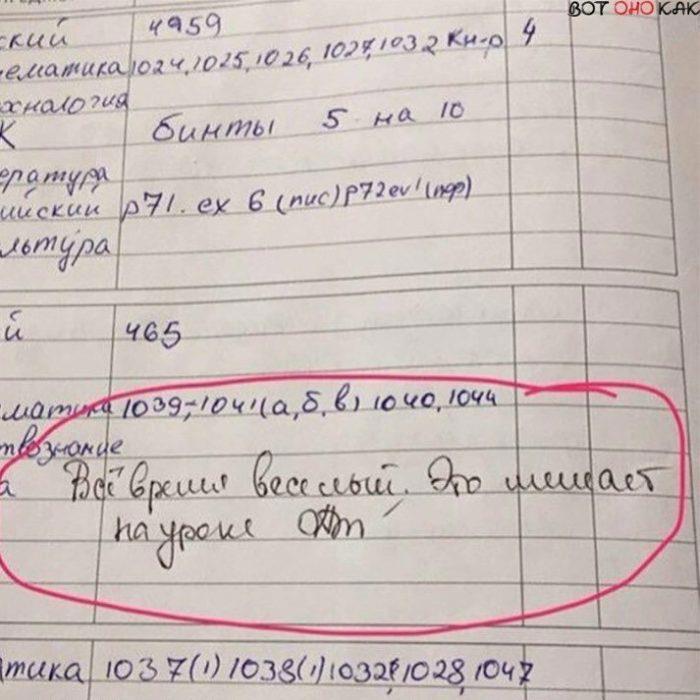 ВОТ ОНО КАК
ский 4959
ематика 1024, 1025, 1026, 1027, 1032 Кн-р 4
хнология
К бинты 5 на 10
ература
ийский p71. ex 6 (пис) p72 ex 1 (пер)
льтура
й 465
матика 1039, 1041 (а, б, в) 1040, 1044
твознание
а Всё время веселый. Это мешает
на уроке
тика 1037(1) 1038(1) 1032, 1028, 1047